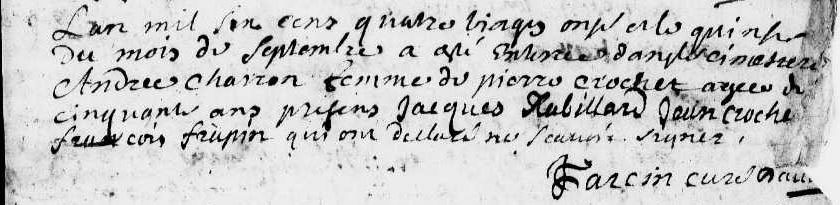 Lan mil six cens quatre vingts onse et le quinse
Du mois de septembre a esté Enterrée dans le cimetiere
Andree charron femme de pierre crochet agee de
cinquante ans presens Jacques Robillard Jean croche
francois frupin qui ont declaré ne scavoir signer,
Farcin curé